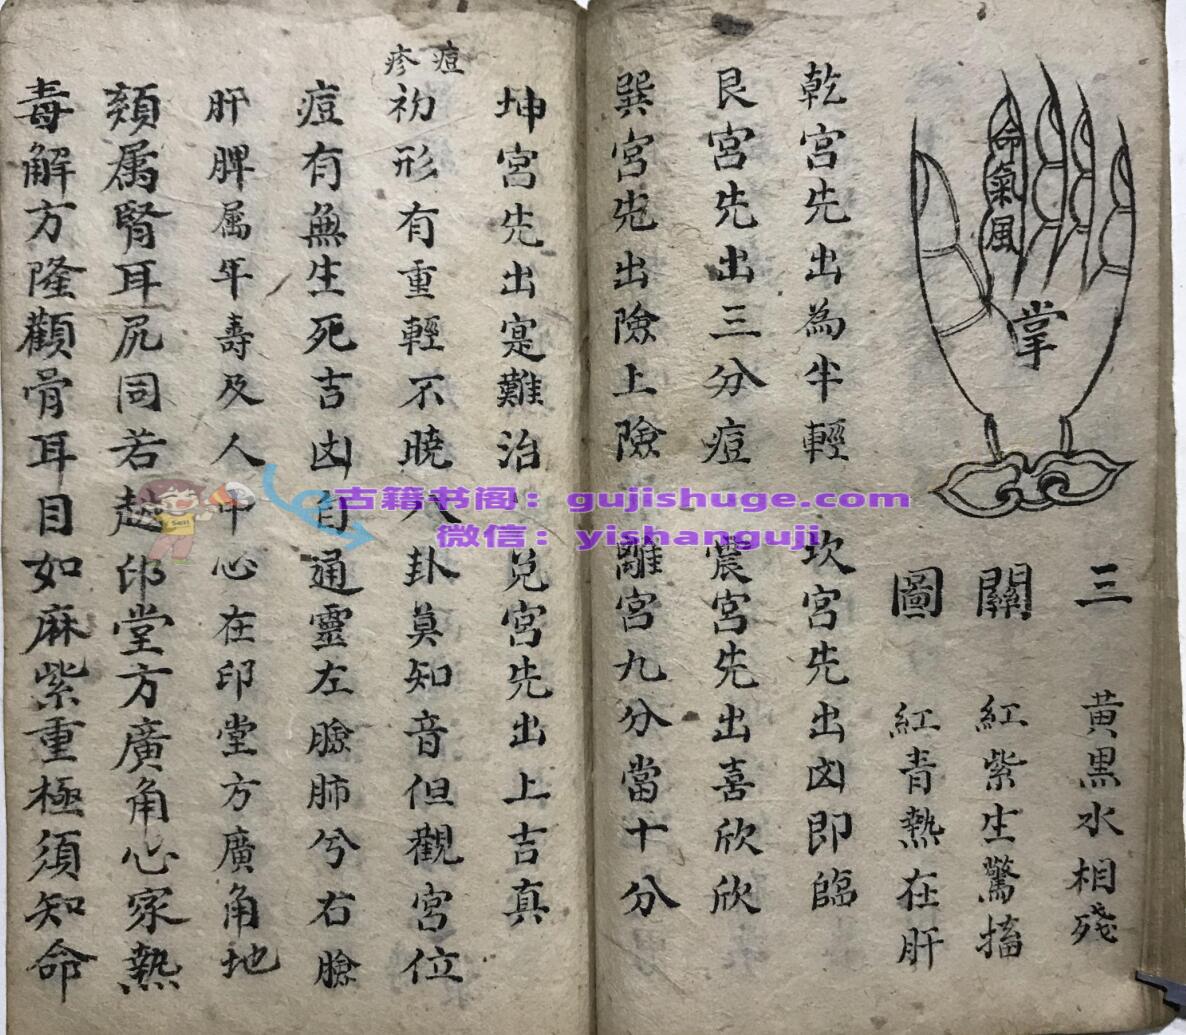 命氣風
掌
三關圖
黃黑水相殘
紅紫生驚搐
紅青熱在肝
乾宮先出為半輕 坎宮先出凶即臨
艮宮先出三分痘 震宮先出喜欣欣
巽宮先出險上險 離宮九分當十分
坤宮先出寔難治 兑宮先出上吉真
痘疹
初形有重輕不曉八卦莫知音但觀宮位
痘有無生死吉凶自通靈左臉肺兮右臉
肝脾属年壽及人中心在印堂方廣角地
頦属腎耳尻同若越印堂方廣角心家熱
毒解方隆顴骨耳目如麻紫重極須知命
古籍书阁：gujishuge.com
微信：yishanguji